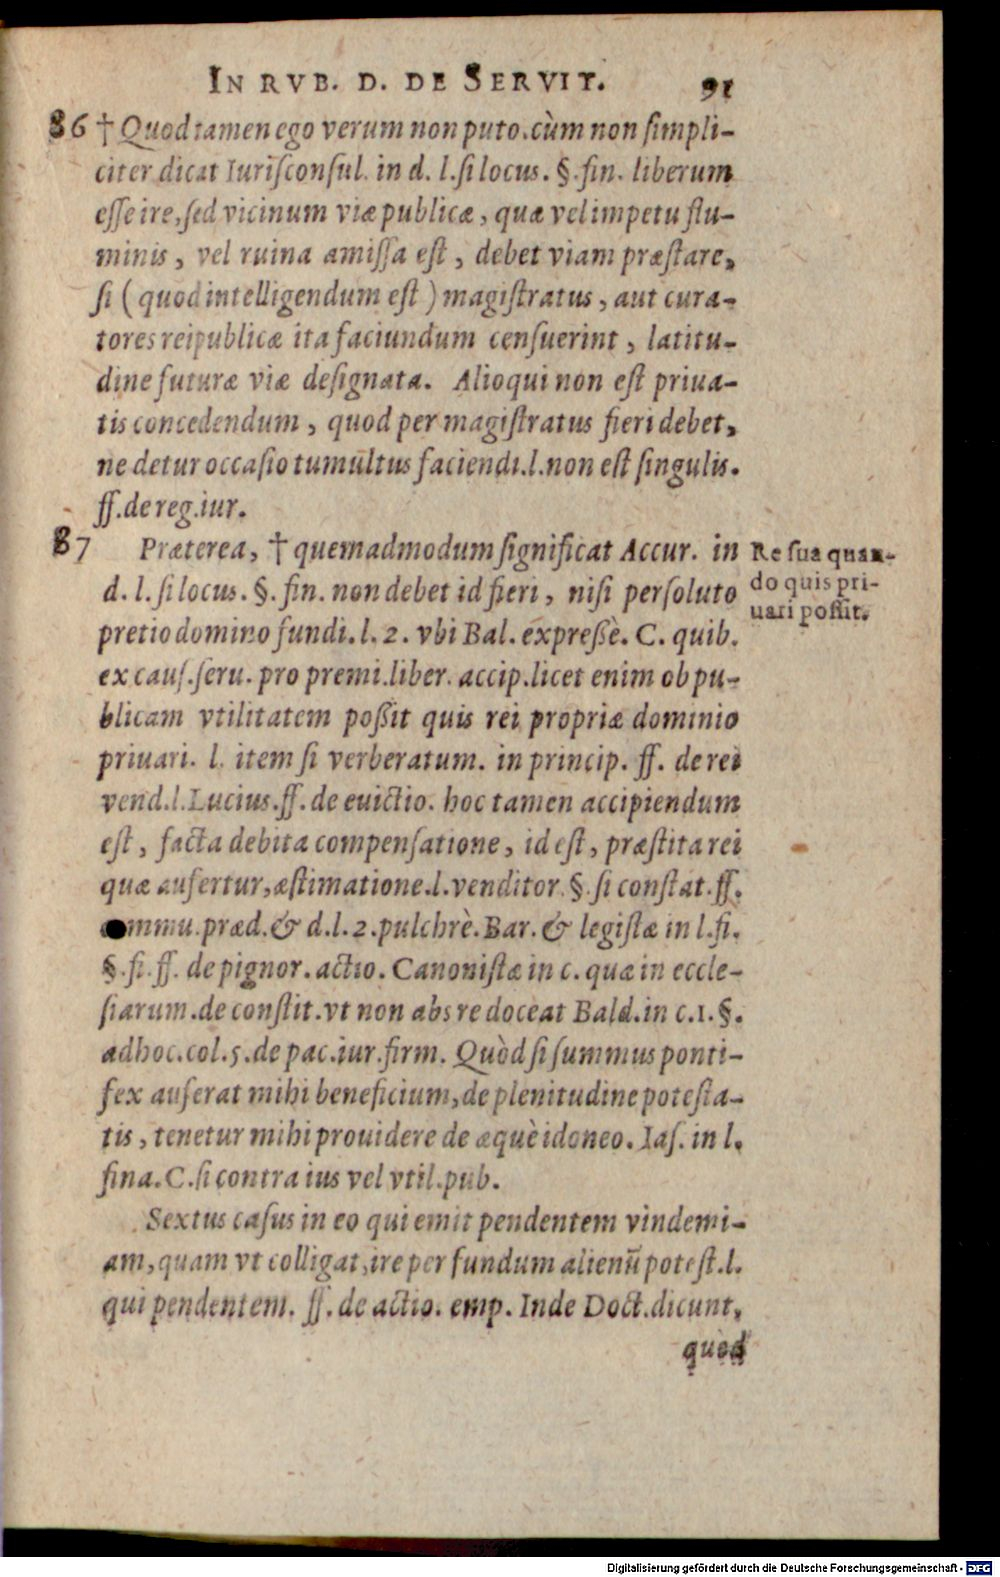 IN RVB. D. DE SERVIT. 91
86 † Quod tamen ego verum non puto. cùm non simpli-
citer dicat Iurisconsul. in d. l. si locus. §. fin. liberum
esse ire, sed vicinum viæ publicæ, quæ vel impetu flu-
minis, vel ruina amissa est, debet viam præstare,
si (quod intelligendum est) magistratus, aut cura-
tores reipublicæ ita faciundum censuerint, latitu-
dine futuræ viæ designata. Alioqui non est priua-
tis concedendum, quod per magistratus fieri debet,
ne detur occasio tumultus faciendi. l. non est singulis.
ff. de reg. iur.
87 Præterea, † quemadmodum significat Accur. in
d. l. si locus. §. fin. non debet id fieri, nisi persoluto
pretio domino fundi. l. 2. vbi Bal. expressè. C. quib.
ex caus. seru. pro premi. liber. accip. licet enim ob pu-
blicam vtilitatem possit quis rei propriæ dominio
priuari. l. item si verberatum. in princip. ff. de rei
vend. l. Lucius. ff. de euictio. hoc tamen accipiendum
est, facta debita compensatione, id est, præstita rei
quæ aufertur, æstimatione. l. venditor §. si constat. ff.
commu. præd. & d. l. 2. pulchrè. Bar. & legistæ in l. fi.
§. fi. ff. de pignor. actio. Canonistæ in c. quæ in eccle-
siarum. de constit. vt non abs re doceat Bald. in c. 1. §.
ad hoc. col. 5. de pac. iur. firm. Quòd si summus ponti-
fex auferat mihi beneficium, de plenitudine potesta-
tis, tenetur mihi prouidere de æquè idoneo. Ias. in l.
fina. C. si contra ius vel vtil. pub.
Sextus casus in eo qui emit pendentem vindemi-
am, quam vt colligat, ire per fundum alienũ potest. l.
qui pendentem. ff. de actio. emp. Inde Doct. dicunt,
quod
Re sua quan-
do quis pri-
uari possit.
Digitalisierung gefördert durch die Deutsche Forschungsgemeinschaft - DFG